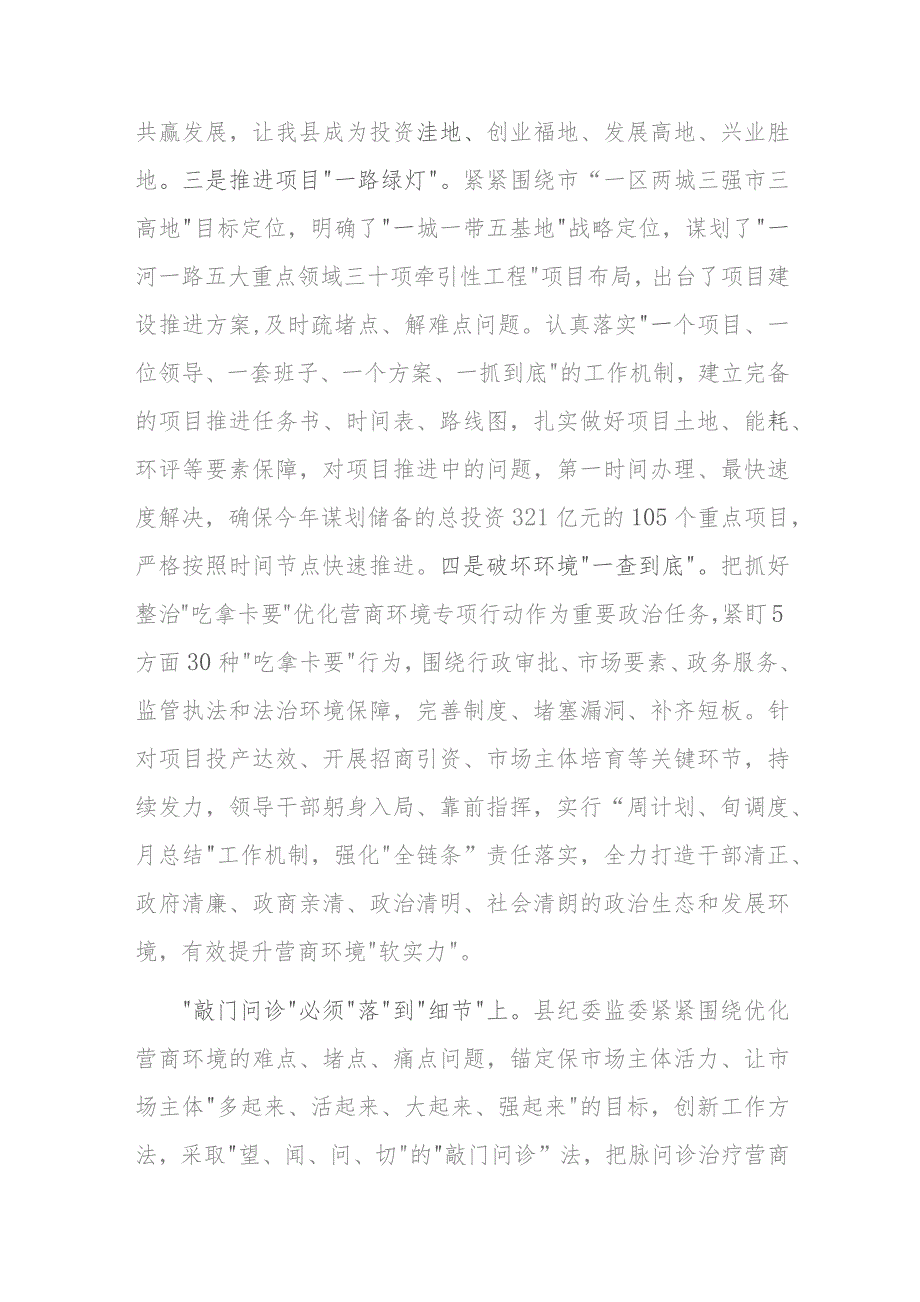 共赢发展，让我县成为投资洼地、创业福地、发展高地、兴业胜
地。三是推进项目"一路绿灯"。紧紧围绕市“一区两城三强市三
高地"目标定位，明确了"一城一带五基地"战略定位，谋划了"一
河一路五大重点领域三十项牵引性工程"项目布局，出台了项目建
设推进方案,及时疏堵点、解难点问题。认真落实"一个项目、一
位领导、一套班子、一个方案、一抓到底"的工作机制，建立完备
的项目推进任务书、时间表、路线图，扎实做好项目土地、能耗、
环评等要素保障，对项目推进中的问题，第一时间办理、最快速
度解决，确保今年谋划储备的总投资 321 亿元的 105 个重点项目，
严格按照时间节点快速推进。四是破坏环境"一查到底"。把抓好
整治"吃拿卡要"优化营商环境专项行动作为重要政治任务,紧盯 5
方面 30 种"吃拿卡要"行为，围绕行政审批、市场要素、政务服务、
监管执法和法治环境保障，完善制度、堵塞漏洞、补齐短板。针
对项目投产达效、开展招商引资、市场主体培育等关键环节，持
续发力，领导干部躬身入局、靠前指挥，实行“周计划、旬调度、
月总结"工作机制，强化"全链条”责任落实，全力打造干部清正、
政府清廉、政商亲清、政治清明、社会清朗的政治生态和发展环
境，有效提升营商环境"软实力"。
"敲门问诊"必须"落"到"细节"上。县纪委监委紧紧围绕优化
营商环境的难点、堵点、痛点问题，锚定保市场主体活力、让市
场主体"多起来、活起来、大起来、强起来"的目标，创新工作方
法，采取"望、闻、问、切"的"敲门问诊”法，把脉问诊治疗营商